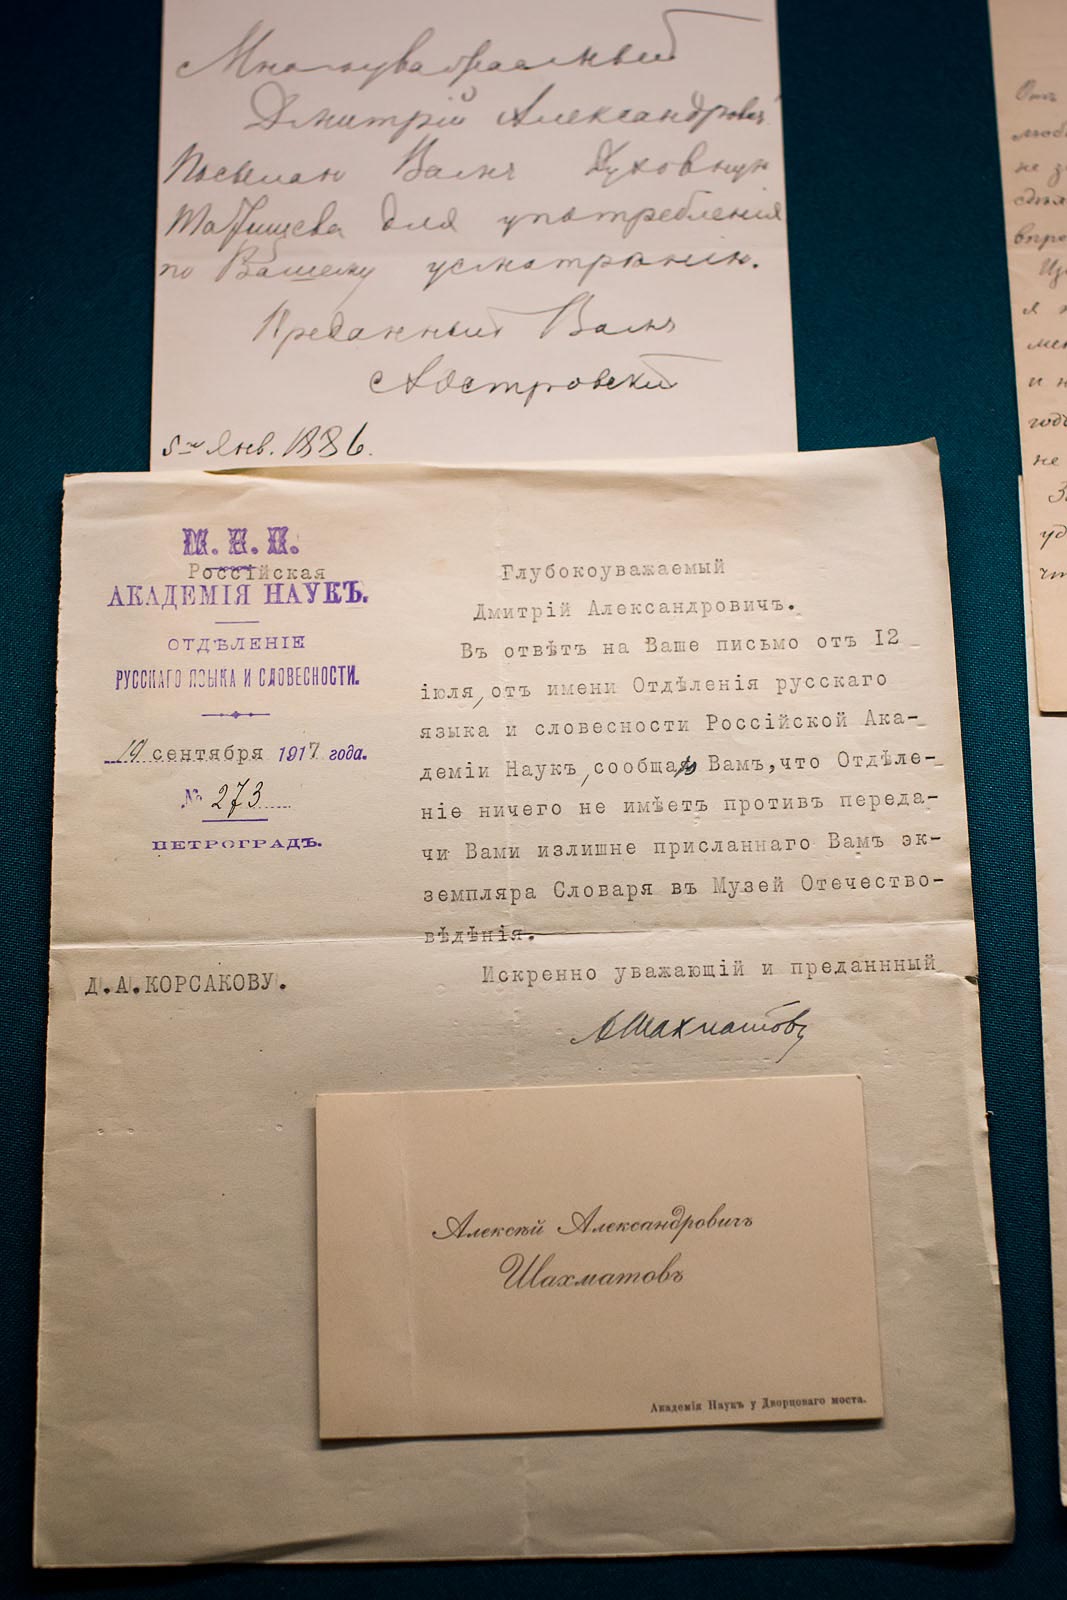 Многоуважаемый
Дмитрій Александровичъ
Посылаю Вамъ Духовную
Татищева для употребленія
по Вашему усмотрѣнію.
Преданный Вамъ
5го Янв. 1886.
М. Н. П.
Россійская
АКАДЕМІЯ НАУКЪ.
ОТДѢЛЕНІЕ
РУССКАГО ЯЗЫКА И СЛОВЕСНОСТИ.
19 сентября 1917 года.
№ 273
ПЕТРОГРАДЪ.
Д.А.КОРСАКОВУ.
Глубокоуважаемый
Дмитрій Александровичъ.
Въ отвѣтъ на Ваше письмо отъ 12
іюля, отъ имени Отдѣленія русскаго
языка и словесности Россійской Ака-
деміи Наукъ, сообщаю Вамъ, что Отдѣле-
ніе ничего не имѣетъ противъ переда-
чи Вами излишне присланнаго Вамъ эк-
земпляра Словаря въ Музей Отечество-
вѣдѣнія.
Искренно уважающій и преданнный
АШахматовъ
Алексѣй Александровичъ
Шахматовъ
Академія Наукъ у Дворцоваго моста.
не
я
и
не